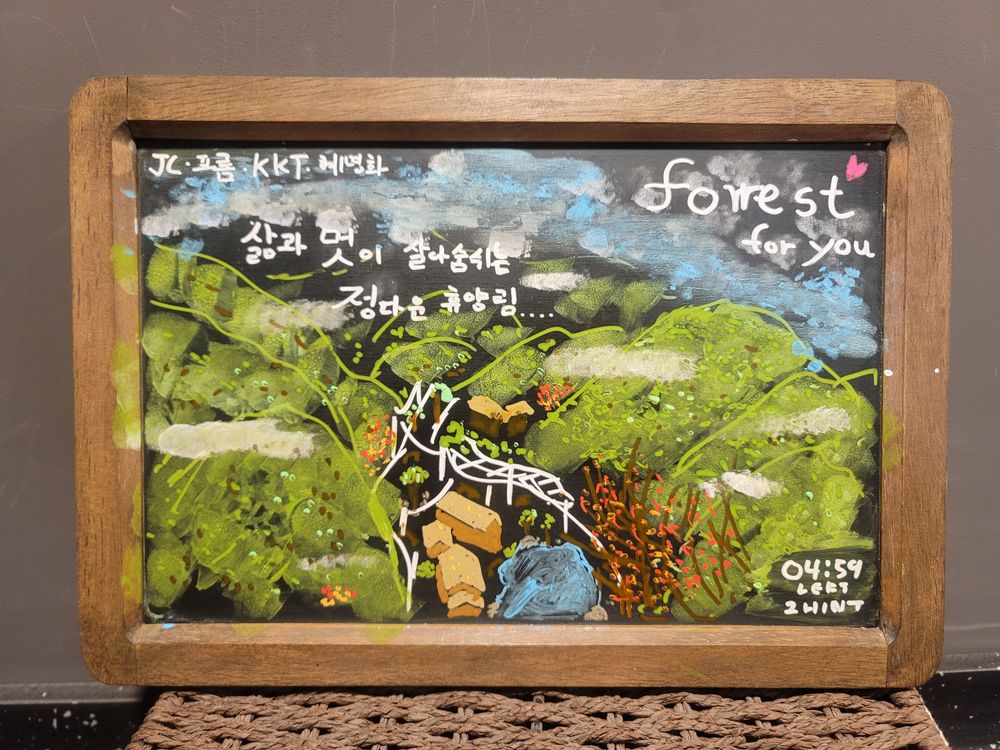 JC·프름·KKT·혜명화
forrest
for you
삶과 멋이 살아숨쉬는
정다운 휴양림....
04:59
LEFT
2HINT